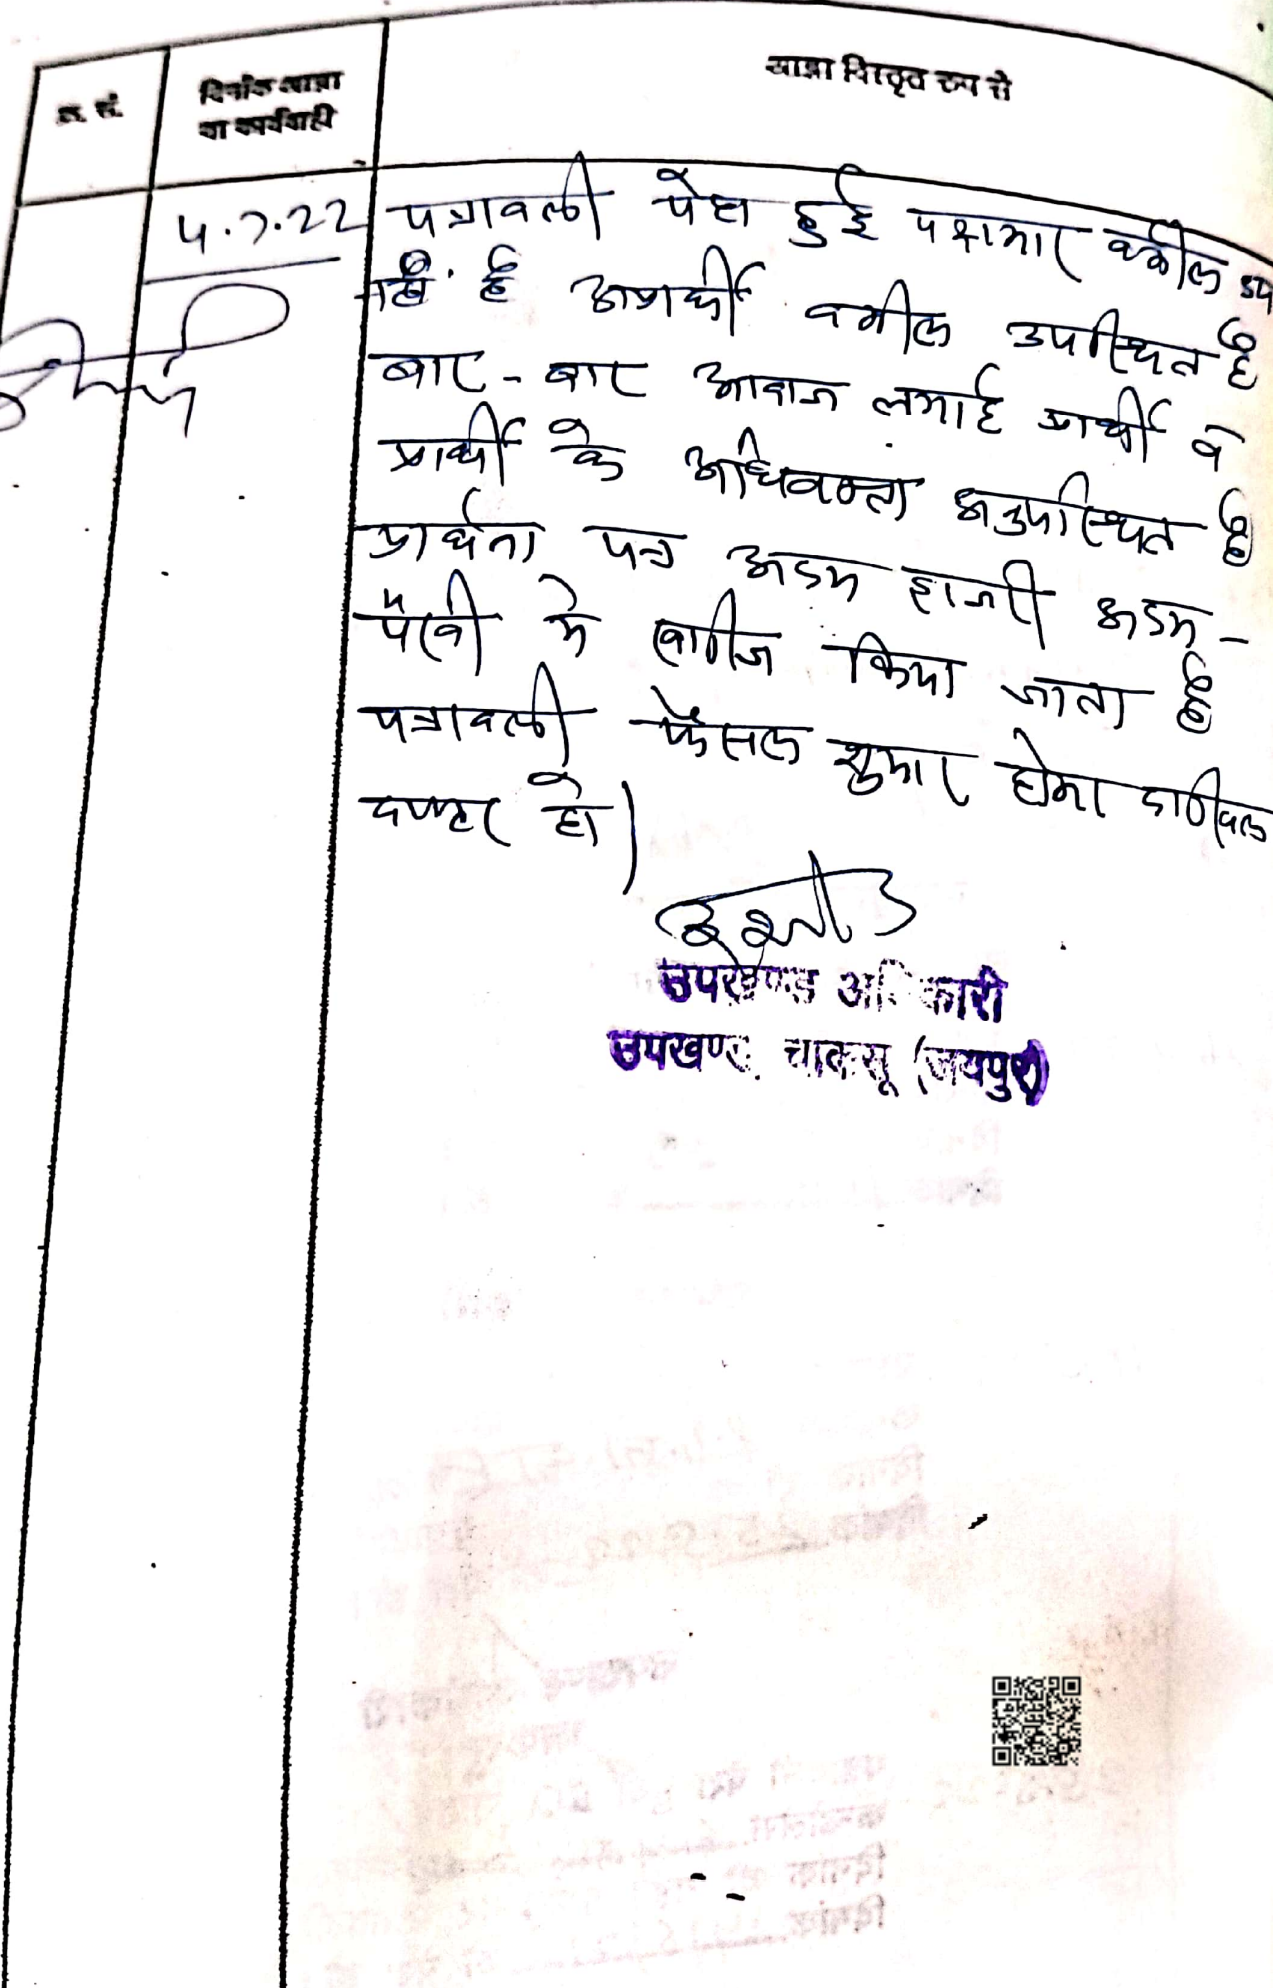 क्र. सं.
दिनांक आज्ञा
या कार्यवाही
आज्ञा विस्तृत रूप से
4.7.22
पत्रावली पेश हुई पक्षकार वकील उप
नहीं है अप्रार्थी वकील उपस्थित है
बार-बार आवाज लगाई प्रार्थी व
प्रार्थी के अधिवक्ता अनुपस्थित है
प्रार्थना पत्र अदम हाजरी अदम-
पैरवी मे खारीज किया जाता है
पत्रावली फैसल शुमार होकर दाखिल
दफ्तर हो।
उपखण्ड अधिकारी
उपखण्ड चाकसू (जयपुर)